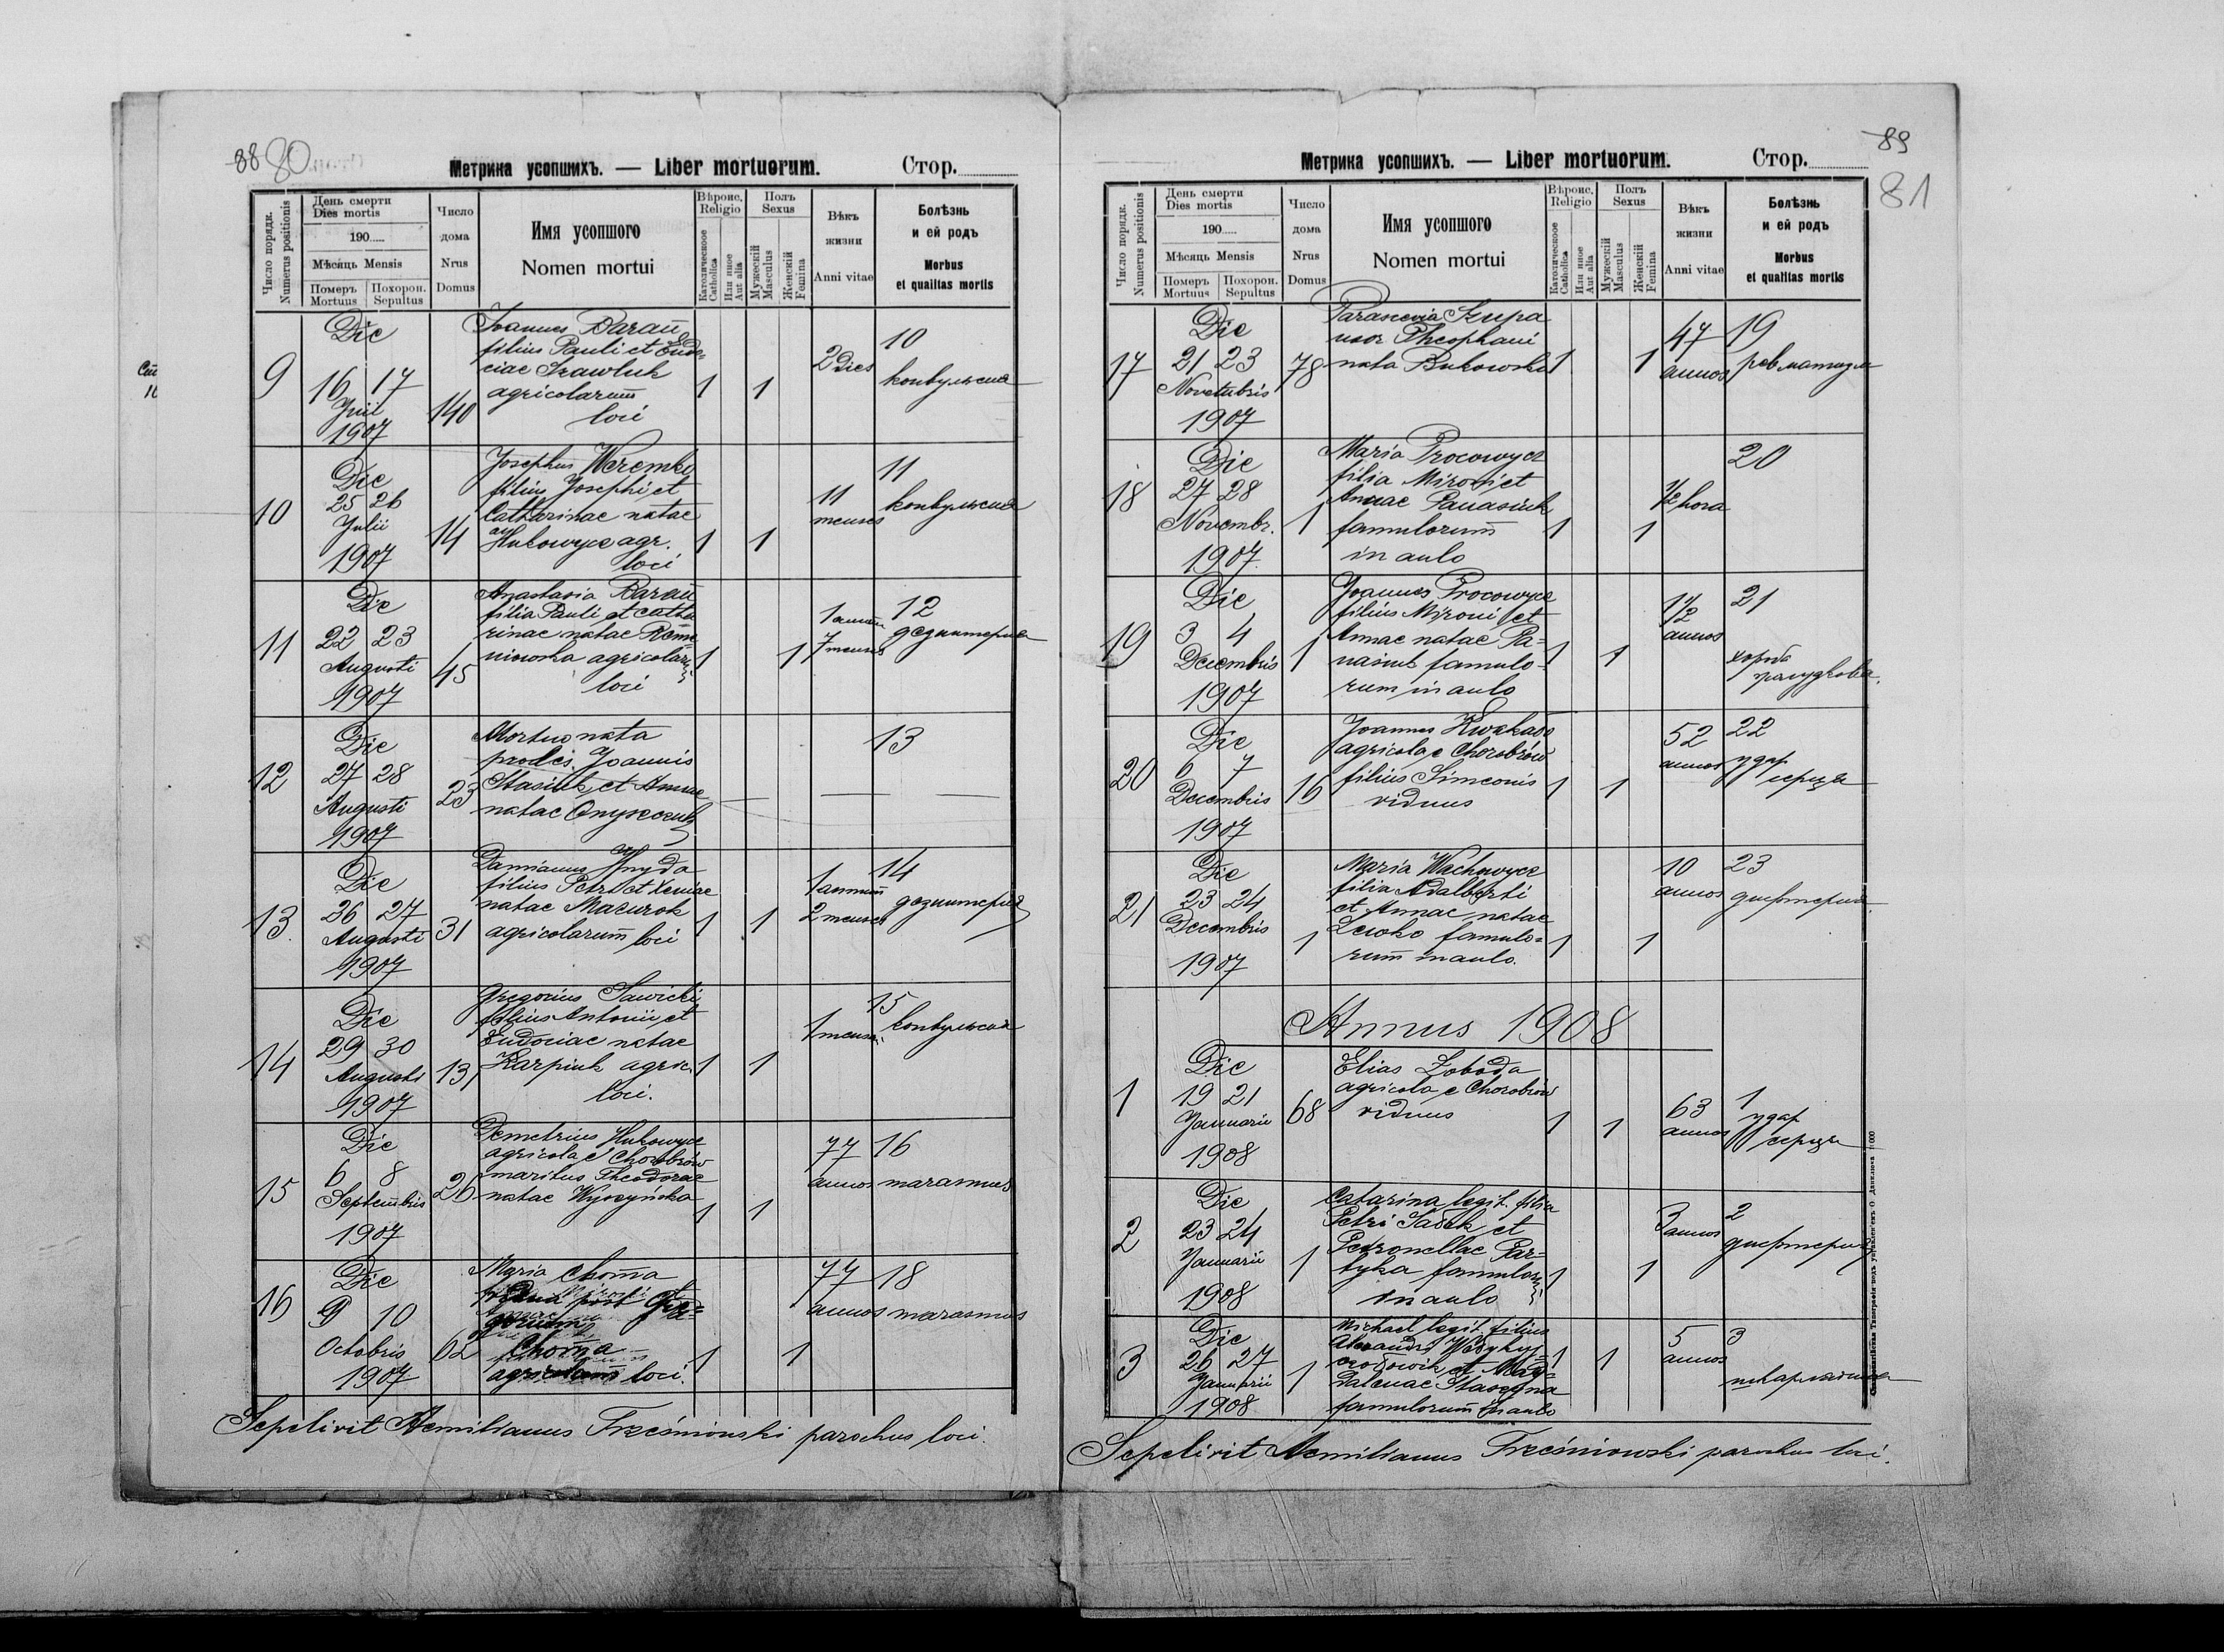 88 80
Метрика усопшихъ. — Liber mortuorum. Стор.
Число порядк.
Numerus positionis
День смерти
Dies mortis
190
Мѣсяць Mensis
Померъ
Mortuus
Похорон.
Sepultus
Число
дома
Nrus
Domus
Имя усопшого
Nomen mortui
Вѣроис.
Religio
Католическоое
Catholica
Или иное
Aut alia
Полъ
Sexus
Мужескій
Masculus
Женскій
Femina
Вѣкъ
жизни
Anni vitae
Болѣзнь
и ей родъ
Morbus
et qualitas mortis
9
Die
16 17
1907
140
Joannes Baran
filius Pauli et Eudo=
ciae Szawluk
agricolarum
loci
1 1
2 Dies
10
конвульсия
10
Die
25 26
Julii
1907
14
Josephus Weremko
filius Josephi et
Catharinae natae
Hukowycz agr.
loci
1 1
11
menses
11
конвульсия
11
Die
22 23
Augusti
1907
45
Anastasia Baran
filia Pauli et Catha
rinae natae
agricolarum
loci
1 1
1 annum
7 menses
12
дезинтерия
12
Die
27 28
Augusti
1907
23
Mortuo nata
proles Joannis
Stasiuk et Annae
natae
13
13
Die
26 27
Augusti
1907
31
Damianus Hnyda
filius Petri et Xeniae
natae Mazurok
agricolarum loci
1 1
1 annum
2 menses
14
дезинтерия
14
Die
29 30
Augusti
1907
131
Gregorius Sawicki
filius Antonii et
Eudociae natae
Karpiuk agric.
loci.
1 1
1 mensis
15
конвульсия
15
Die
6 8
Septembris
1907
26
Demetrius Hukowycz
agricola e Chorobrów
maritus Theodorae
natae Wyszyńska
1 1
77
annos
16
marasmus
16
Die
9 10
Octobris
1907
62
Maria Choma
vidua post Gre=
gorium
Choma
loci.
1 1
77
annos
18
marasmus
Sepelivit Aemilianus Trześniowski parochus loci.
89
81
Метрика усопшихъ. — Liber mortuorum. Стор.
Число порядк.
Numerus positionis
День смерти
Dies mortis
190
Мѣсяць Mensis
Померъ
Mortuus
Похорон.
Sepultus
Число
дома
Nrus
Domus
Имя усопшого
Nomen mortui
Вѣроис.
Religio
Католическоое
Catholica
Или иное
Aut alia
Полъ
Sexus
Мужескій
Masculus
Женскій
Femina
Вѣкъ
жизни
Anni vitae
Болѣзнь
и ей родъ
Morbus
et qualitas mortis
17
Die
21 23
Novembris
1907
78
Parascevia Szupa
uxor Theophani
nata Bukowska
1 1
47
annos
19
ревматизм
18
Die
27 28
Novembr.
1907
1
Maria Procowycz
filia Mironi et
Annae Panasiuk
famulorum
in aulo
1 1
1/2 hora
20
19
Die
3 4
Decembris
1907
1
Joannes Procowycz
filius Mironi et
Annae natae Pa=
nasiuk famulo=
rum in aulo
1 1
1 1/2
annos
21
хороба
20
Die
6 7
Decembris
1907
16
Joannes
agricola e Chorobrów
filius Simeonis
viduus
1 1
52
annos
22
удар
серця
21
Die
23 24
Decembris
1907
1
Maria Wachnycz
filia Adalberti
et Annae natae
famulo=
rum in aulo.
1 1
10
annos
23
дифтерия
Annus 1908
1
Die
19 21
Januarii
1908
68
Elias Łoboda
agricola e Chorobrów
viduus
1 1
63
annos
1
удар
серця
2
Die
23 24
Januarii
1908
1
Catarina legit. filia
Petri Sadek et
Petronellae Par=
tyka famulor.
in aulo
1 1
3
annos
2
дифтерия
3
Die
26 27
Januarii
1908
1
Michael legit. filius
et Mag=
dalenae
famulorum in aulo
1 1
5
annos
3
шкарлятина
Sepelivit Aemilianus Trześniowski parochus loci.